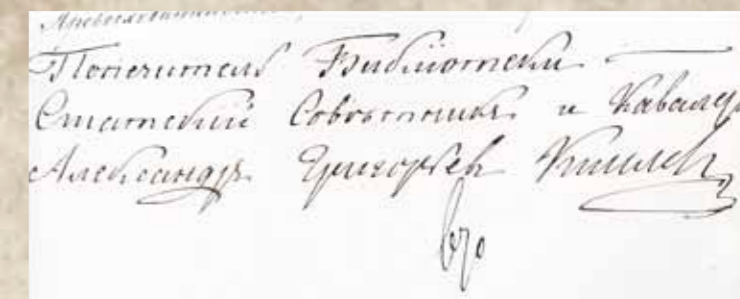 Попечитель Библіотеки
Статскій Совѣтникъ и Кавалеръ
Александръ Григорьев